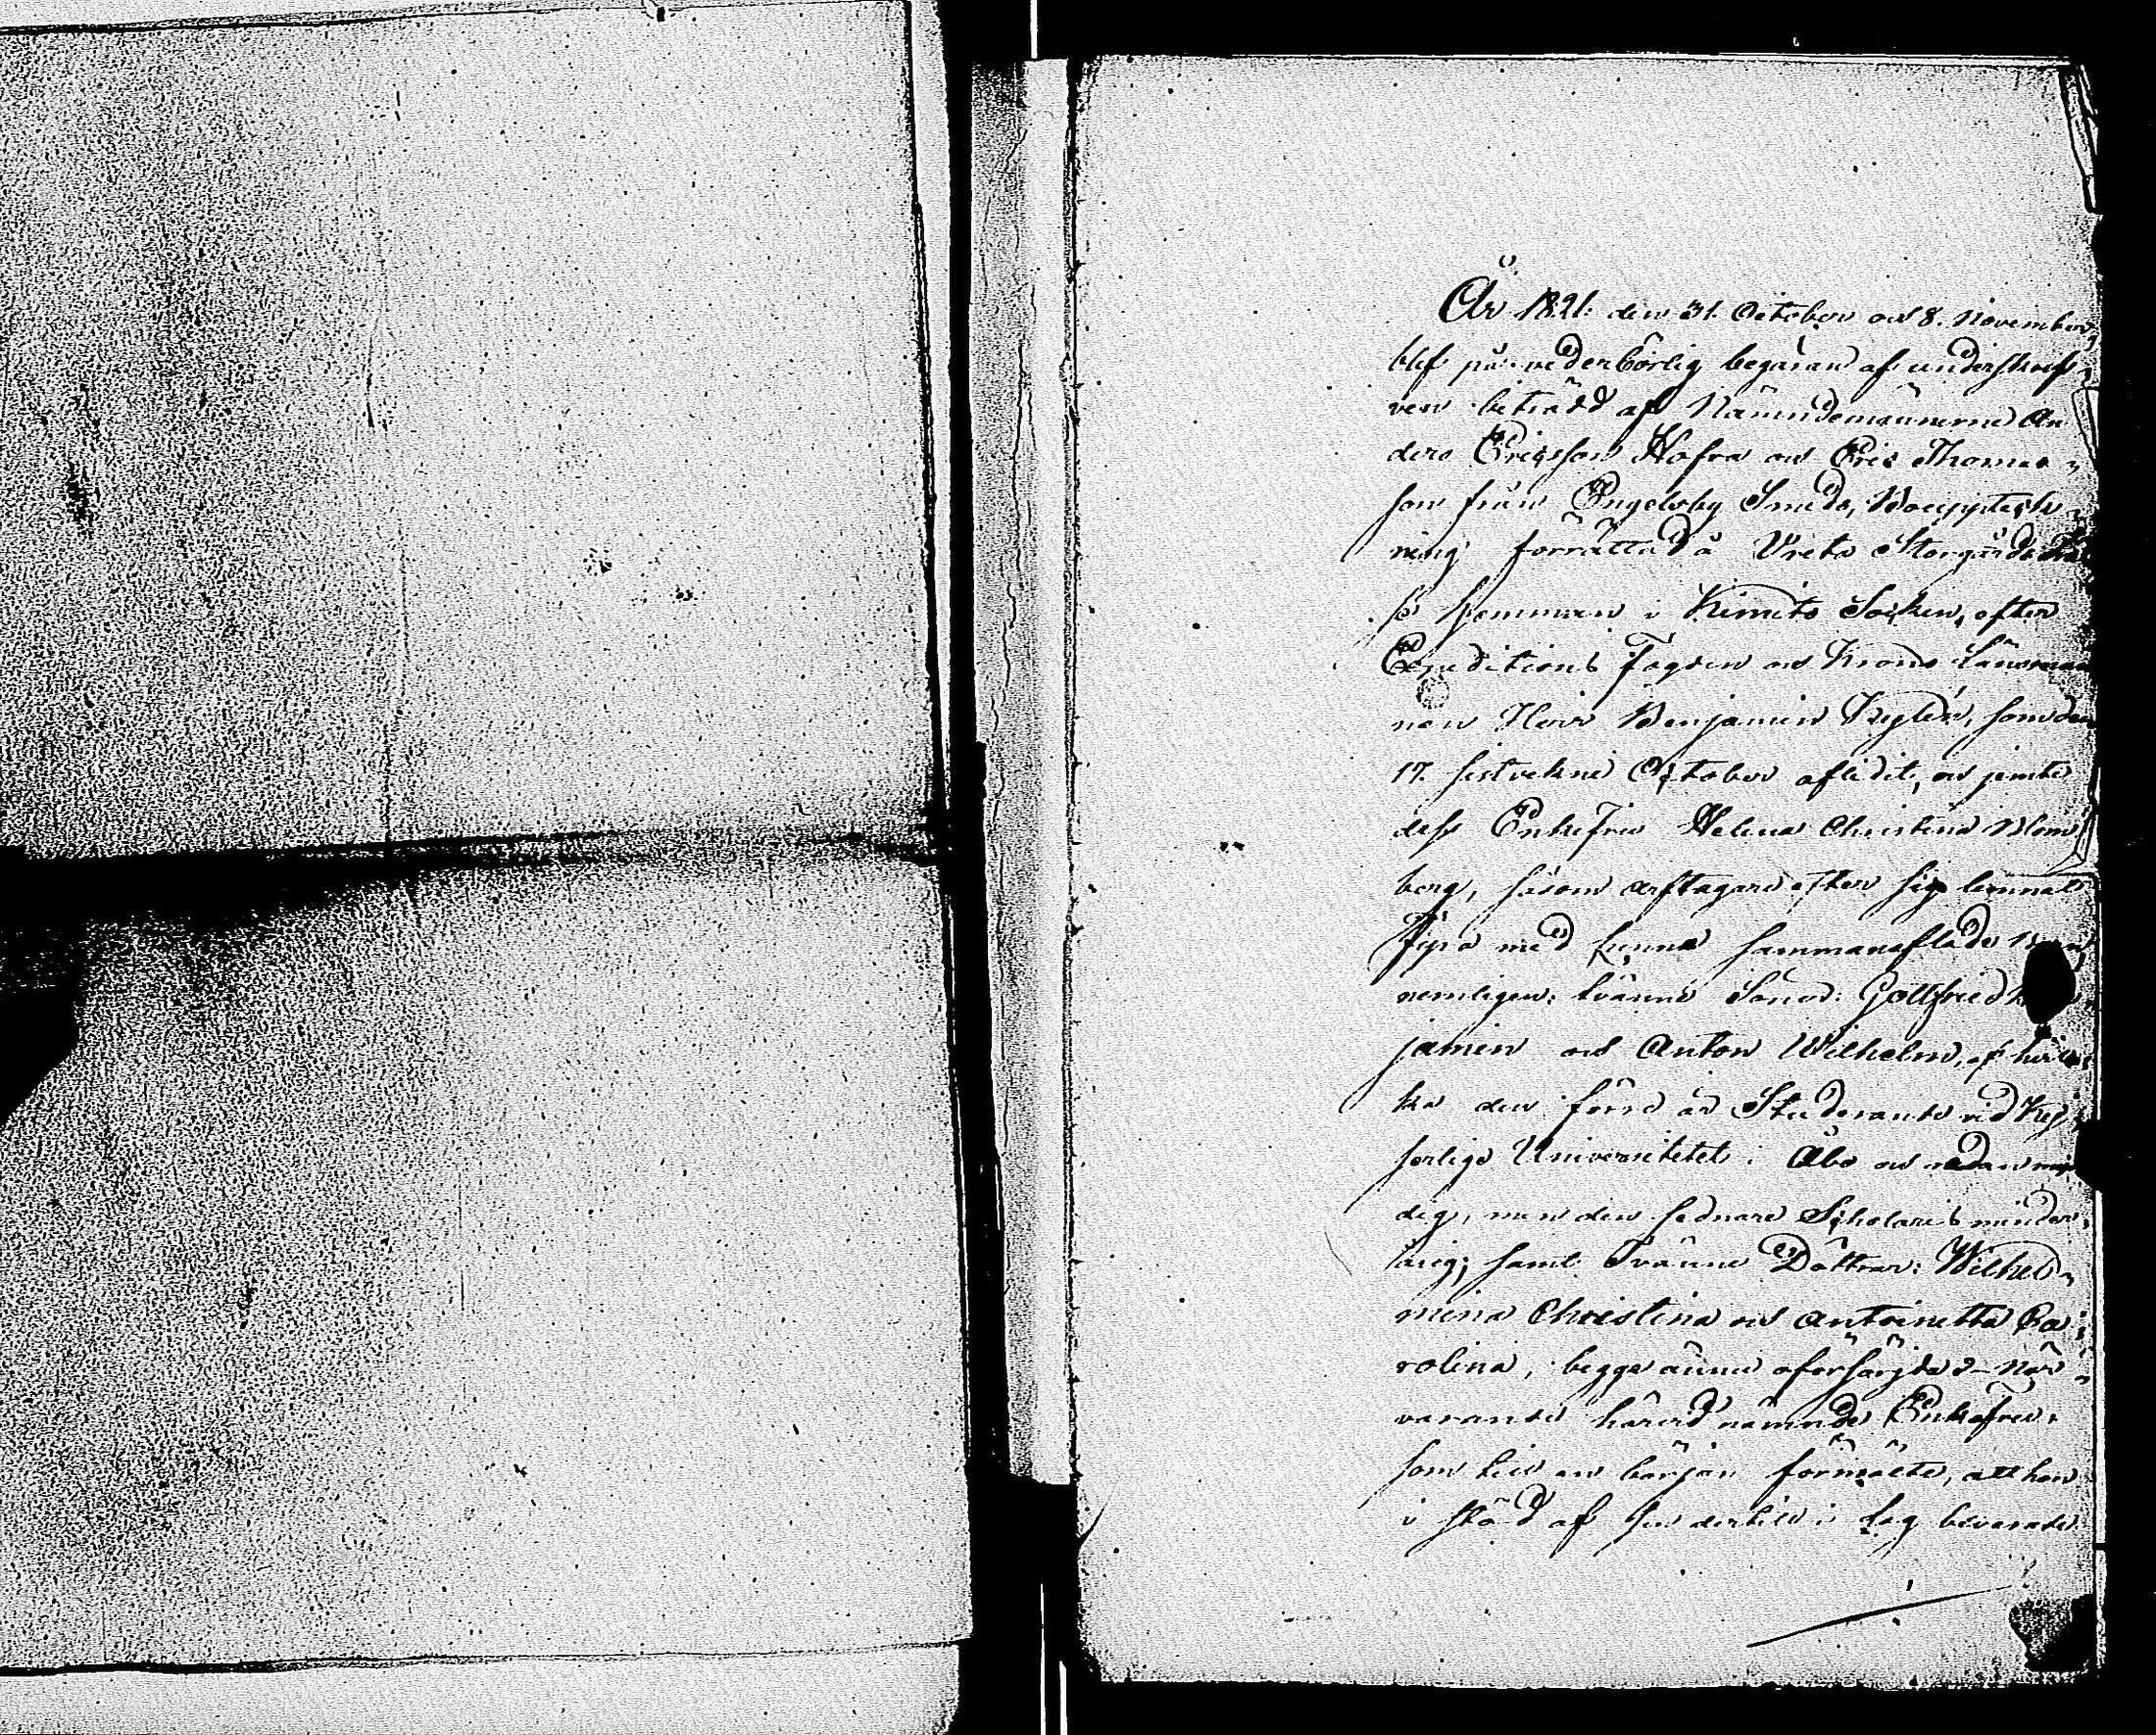 År 1821. den 31. October och 8. November
blef på vederbörlig begäran af underskref-
ven biträdd af Nämndemännerne An
ders Ericsson Hofra och Eric Thomas-
son från Engelsby Smeds, Bouppteck-
ning förrättad å Vreta Storgårds
hemman i Kimito Socken, efter
Expeditions Fogden och Krono Länsman
nen Herr Benjamin som den
17. sistvekne October aflidit, och jemte
dess Enkefru Helena Christina Blom
berg, såsom arftagare efter sig lemnat
Fyra med henne sammanaflade
nemligen: tvänne Söner: Gottfried
jamin och Anton Wilhelm, af hvil-
ka den förre är Studerande vid Kej-
serliga Universitetet i Åbo och redan myn
dig, men den sednare Scholaris minder-
årig; samt Tvänne Döttrar: Wilhel-
mina Christina och Antoinetta Ca-
rolina, begge ännu oförsörjda När-
varande härvid nämnde Enkefru,
som till en början förmälte, att hon
i stöd af sin dertill i Lag bevarade